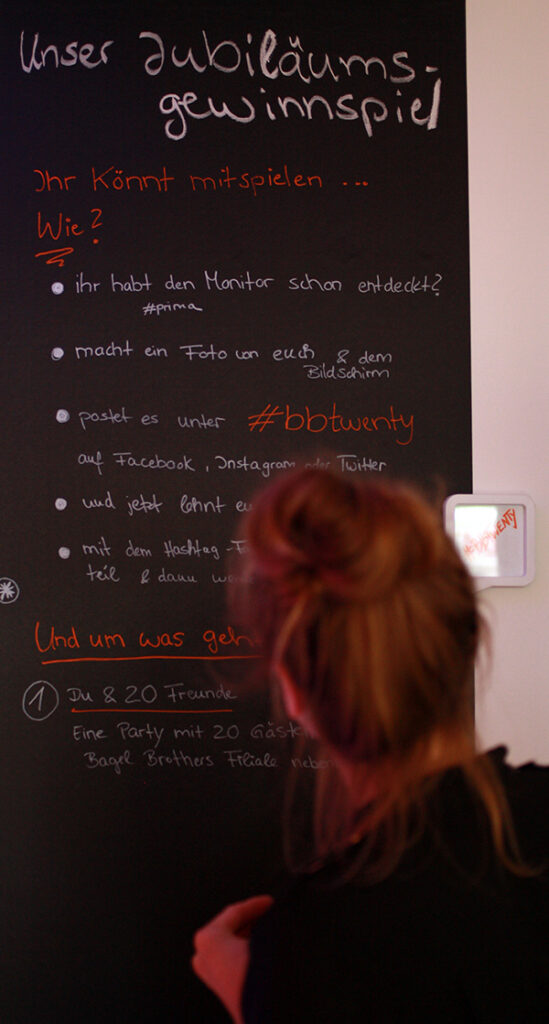 Unser Jubiläums-
gewinnspiel
Ihr Könnt mitspielen ...
Wie?
ihr habt den Monitor schon entdeckt?
#prima
macht ein Foto von euch & dem
Bildschirm
postet es unter #bbtwenty
auf Facebook, Instagram oder Twitter
und jetzt lohnt
mit dem Hashtag-
teil & dann
Und um was
① Du & 20 Freunde
Eine Party mit 20
Bagel Brothers Filiale